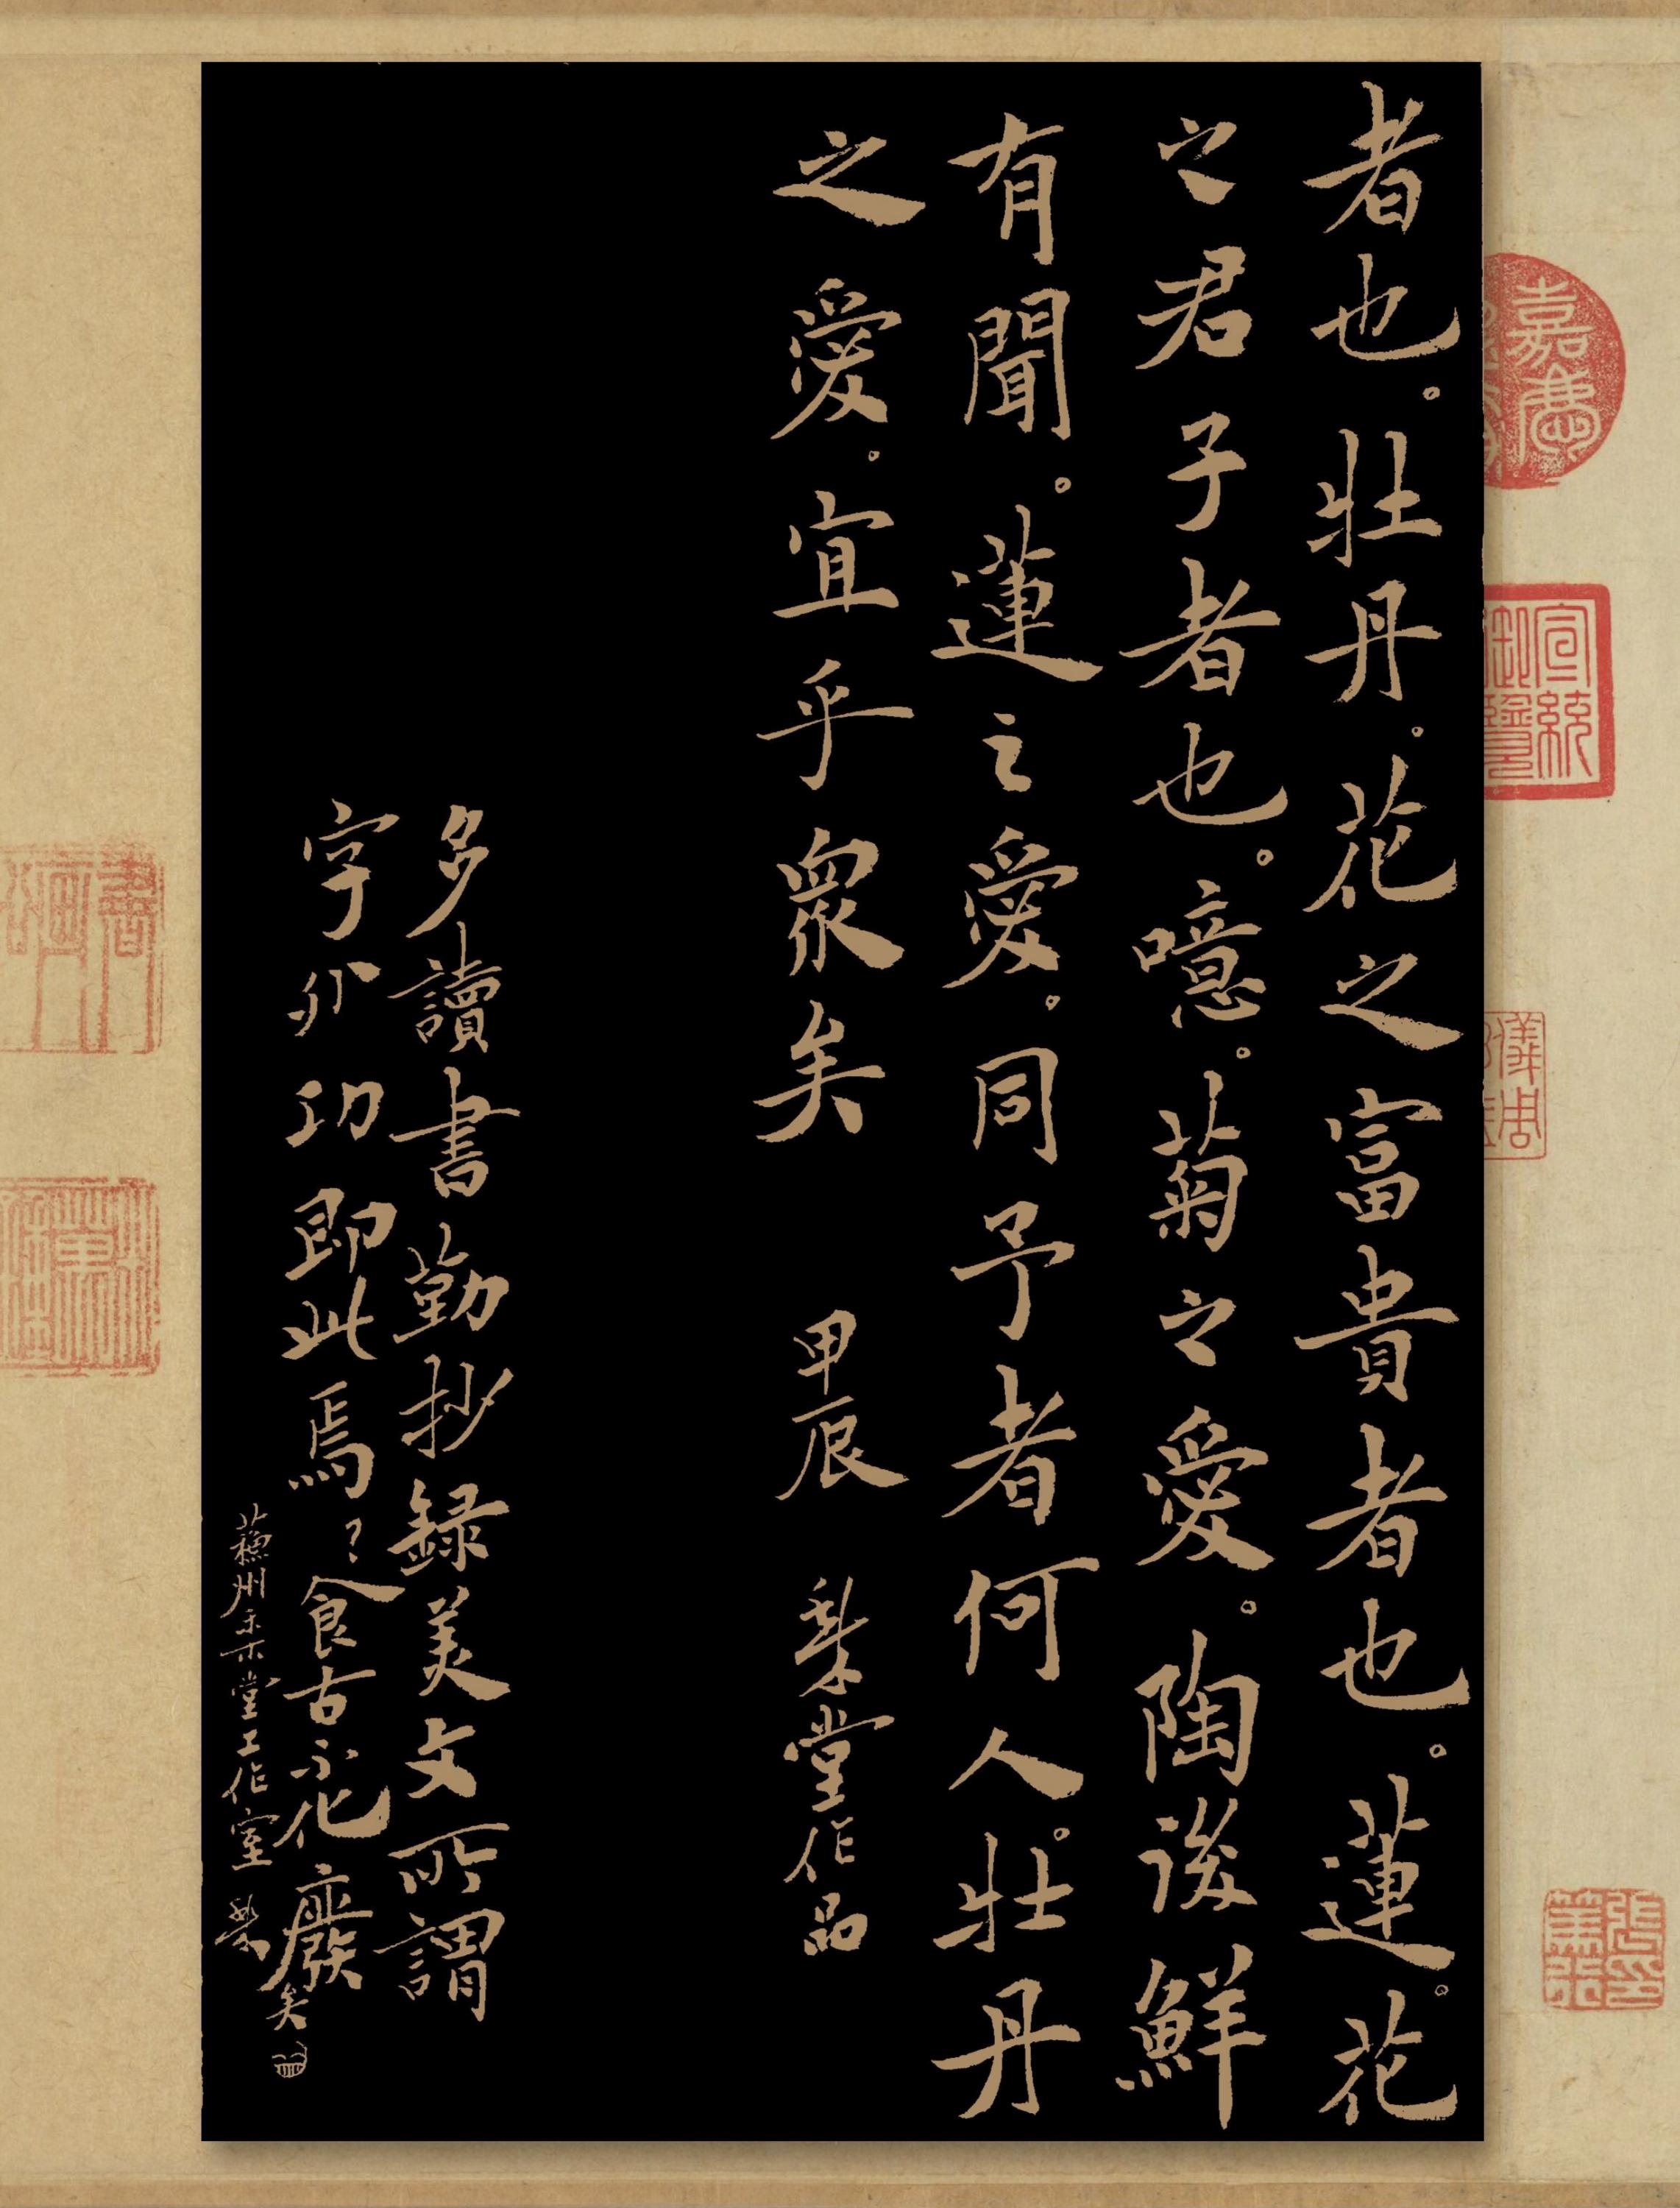 者也。牡丹。花之富貴者也。蓮。花
之君子者也。噫。菊之愛。陶後鮮
有聞。蓮之愛。同予者何人。牡丹
之愛。宜乎眾矣
甲辰 棐堂作品
多讀書勤抄録美文所謂
字外功即此焉㇒食古不化廢矣
蘓州 堂工作室
宣統御覽